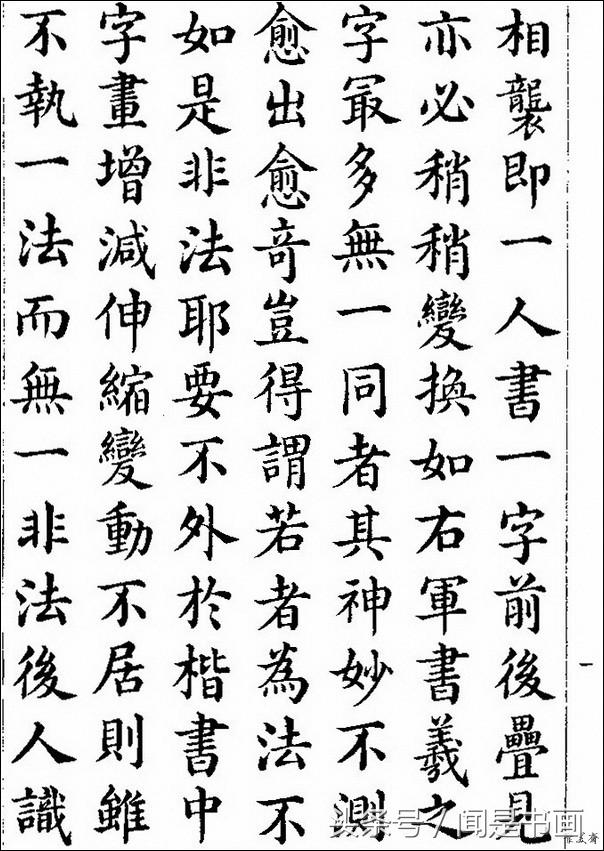 相襲即一人書一字前後疊見
亦必稍稍變換如右軍書羲之
字冣多無一同者其神妙不測
愈出愈竒豈得謂若者為法不
如是非法耶要不外於楷書中
字畫增減伸縮變動不居則雖
不執一法而無一非法後人識
一
头条号/闻是书画